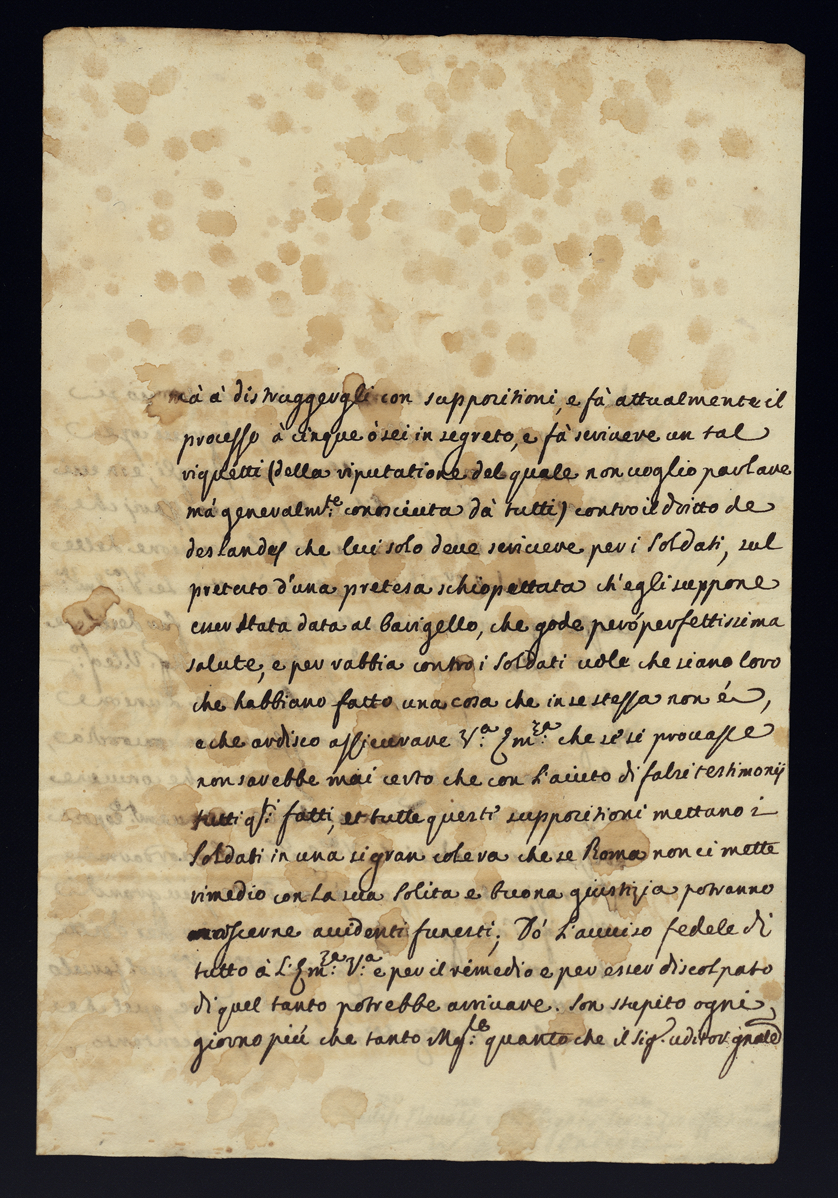 mà à distruggergli con suppositioni, e fà attualmente il
processo à cinque ò sei in segreto, e fà scrivere un tal
riquetti (della riputatione del quale non voglio parlare
mà generalm.te conosciuta dà tutti) contro il dritto de
deslandes che lui solo deve scrivere per i soldati, sul
pretesto d'una pretesa schiopettata ch'egli suppone
esser stata data al Barigello, che gode però perfettissima
salute, e per rabbia contro i soldati vole che siano loro
che habbiano fatto una cosa che in se stessa non é,
e che ardisco assicurare V.a Em.za che se si provasse
non sarebbe mai certo che con L'aiuto di falsi testimonij
tutti q.sti fatti, et tutte questi suppositioni mettano i
soldati in una si gran colera che se Roma non ci mette
rimedio con La sua solita e buona giustizia potranno
nascerne accidenti funesti; Dò L'avviso fedele di
tutto à L'Em.za V.a e per il rimedio e per esser discolpato
di quel tanto potrebbe arrivare. son stupito ogni
giorno più che tanto Mg.re quanto che il sig.r uditor gnãle